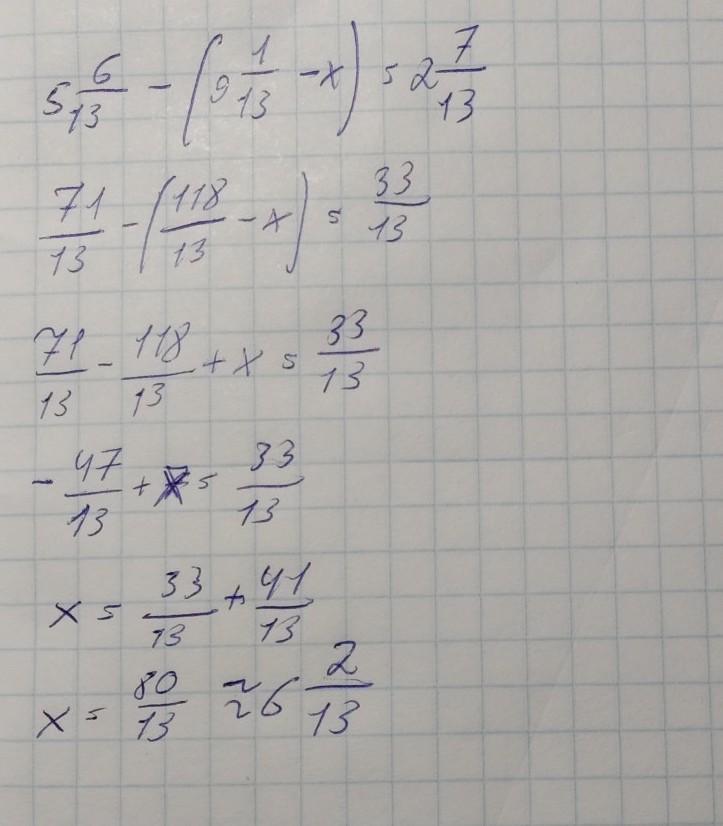 5 6/13 - (9 1/13 - x) = 2 7/13
71/13 - (118/13 - x) = 33/13
71/13 - 118/13 + x = 33/13
- 47/13 + x = 33/13
x = 33/13 + 41/13
x = 80/13 ≈ 6 2/13